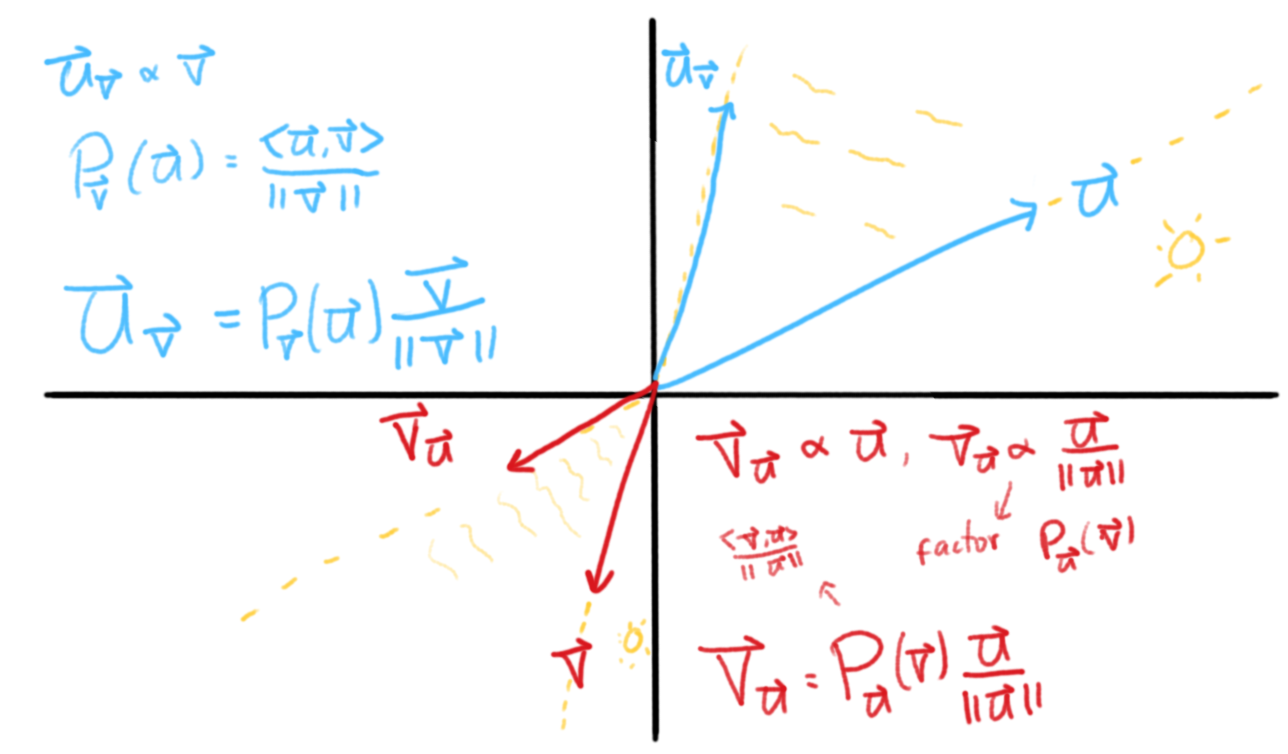 u⃗_v⃗ ∝ v⃗
P_v⃗(u⃗) = <u⃗,v⃗> / ||v⃗||
u⃗_v⃗ = P_v⃗(u⃗) v⃗ / ||v⃗||
u⃗_v⃗
u⃗
v⃗_u⃗
v⃗
v⃗_u⃗ ∝ u⃗, v⃗_u⃗ ∝ u⃗ / ||u⃗||
<v⃗,u⃗> / ||u⃗||
factor P_u⃗(v⃗)
v⃗_u⃗ = P_u⃗(v⃗) u⃗ / ||u⃗||